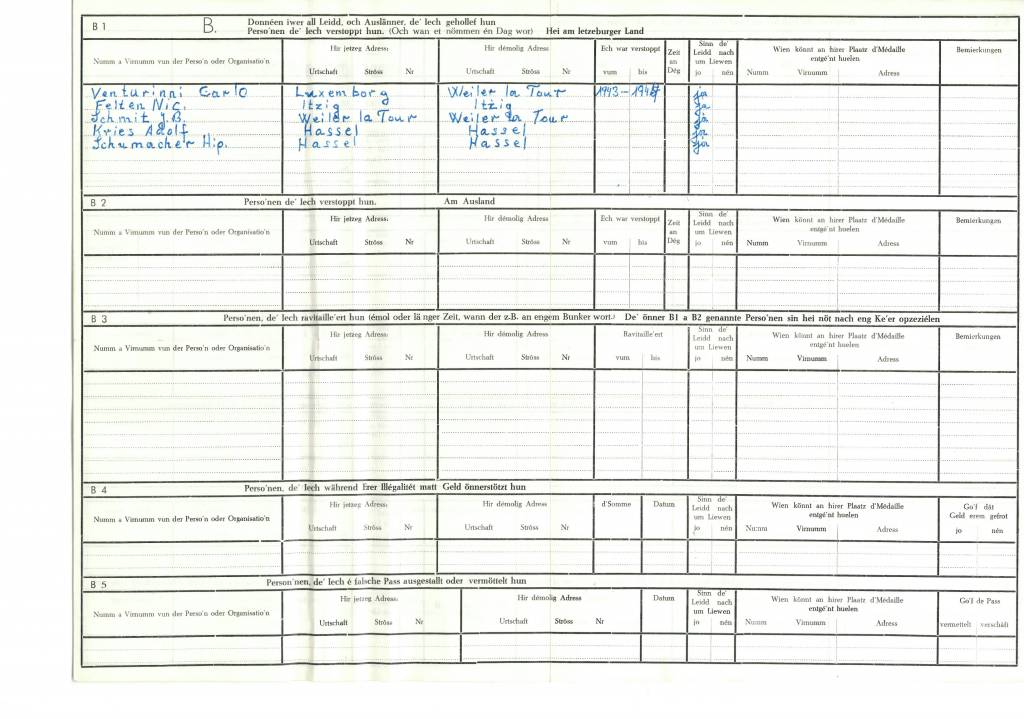 B 1 B. Donnéen iwer all Leidd, och Auslänner, de' Iech gehollef hun
Perso'nen de' Iech verstoppt hun. (Och wan et nömmen én Dag wor) Hei am letzeburger Land
Numm a Virnumm vun der Perso'n oder Organisatio'n Hir jetzeg Adress: Hir démolig Adress Ech war verstoppt Zeit an Dég Sinn de' Leidd nach um Liewen Wien könnt an hirer Plaatz d'Médaille entgé'nt huelen Bemierkungen
Urtschaft Ströss Nr Urtschaft Ströss Nr vum bis jo nén Numm Virnumm Adress
Venturinni Carlo Luxemborg Weiler la Tour 1943-1944 ja
Felten Nic. Itzig Itzig ja
Schmit J.B. Weiler la Tour Weiler la Tour ja
Kries Adolf Hassel Hassel ja
Schumacher Hip. Hassel Hassel ja
B 2 Perso'nen de' Iech verstoppt hun. Am Ausland
Numm a Virnumm vun der Perso'n oder Organisatio'n Hir jetzeg Adress: Hir démolig Adress Ech war verstoppt Zeit an Dég Sinn de' Leidd nach um Liewen Wien könnt an hirer Plaatz d'Médaille entgé'nt huelen Bemierkungen
Urtschaft Ströss Nr Urtschaft Ströss Nr vum bis jo nén Numm Virnumm Adress
B 3 Perso'nen, de' Iech ravitaille'ert hun (émol oder länger Zeit, wann der z.B. an engem Bunker wort.) De' önner B1 a B2 genannte Perso'nen sin hei nöt nach eng Ke'er opzeziélen
Numm a Virnumm vun der Perso'n oder Organisatio'n Hir jetzeg Adress: Hir démolig Adress Ravitaille'ert Sinn de' Leidd nach um Liewen Wien könnt an hirer Plaatz d'Médaille entgé'nt huelen Bemierkungen
Urtschaft Ströss Nr Urtschaft Ströss Nr vum bis jo nén Numm Virnumm Adress
B 4 Perso'nen, de' Iech während Erer Illégalitét matt Geld önnerstötzt hun
Numm a Virnumm vun der Perso'n oder Organisatio'n Hir jetzeg Adress: Hir démolig Adress d'Somme Datum Sinn de' Leidd nach um Liewen Wien könnt an hirer Plaatz d'Médaille entgé'nt huelen Go'f dât Geld erem gefrot
Urtschaft Ströss Nr Urtschaft Ströss Nr jo nén Numm Virnumm Adress jo nén
B 5 Person'nen, de' Iech é falsche Pass ausgestallt oder vermöttelt hun
Numm a Virnumm vun der Perso'n oder Organisatio'n Hir jetzeg Adress: Hir démolig Adress Datum Sinn de' Leidd nach um Liewen Wien könnt an hirer Plaatz d'Médaille entgé'nt huelen Go'f de Pass
Urtschaft Ströss Nr Urtschaft Ströss Nr jo nén Numm Virnumm Adress vermettelt verschâft